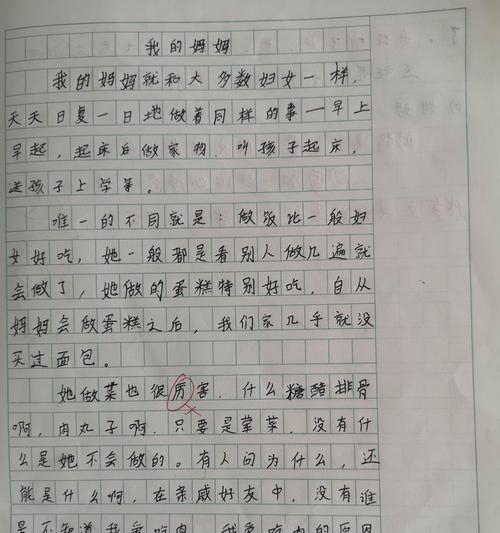 我的妈妈
我的妈妈就和大多数妇女一样，
天天日复一日地做着同样的事一早上
早起，起床后做家物，叫孩子起床，
送孩子上学等。
唯一的不同就是：做饭比一般妇
女好吃，她一般都是看别人做几遍就
会做了，她做的蛋糕特别好吃，自从
妈妈会做蛋糕之后，我们家几乎就没
买过面包。
她做菜也很厉害，什么糖醋排骨
啊，肉丸子啊，只要是荤菜，没有什
么是她不会做的。有人问为什么，还
能是什么啊，在亲戚好友中，没有谁
是不知道我爱吃肉，我爱吃肉的原因